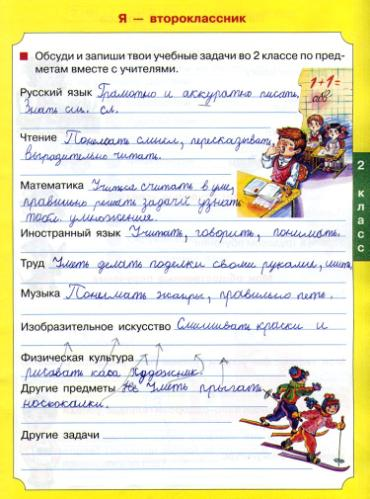 Я — второклассник
Обсуди и запиши твои учебные задачи во 2 классе по пред-
метам вместе с учителями.
1+1=
Русский язык Грамотно и аккуратно писать.
Знать сл. сл.
Чтение Понимать смысл, пересказывать,
выразительно читать.
Математика Учиться считать в уме,
правильно решать задачи узнать
табл. умножения.
Иностранный язык Читать, говорить, понимать.
Труд Уметь делать поделки своими руками, шить
Музыка Понимать жанры, правильно петь.
Изобразительное искусство Смешивать краски и
Физическая культура
рисовать как художник.
Другие предметы Не Уметь прыгать
на скакалки.
Другие задачи
2 класс